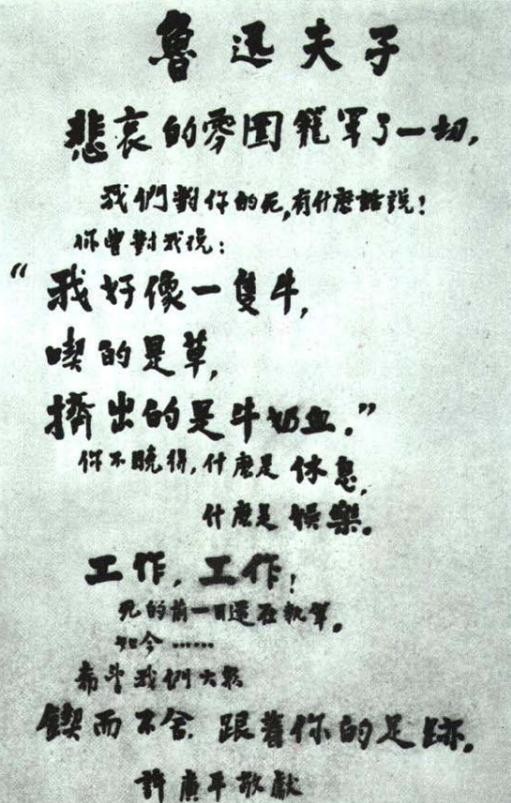 魯迅夫子
悲哀的雰圍籠罩了一切,
我們對你的死,有什麽話說!
你曾對我說:
“我好像一隻牛,
喫的是草,
擠出的是牛奶血.”
你不曉得,什麽是休息,
什麽是娛樂。
工作,工作!
死的前一日還在執筆。
如今……
希望我們大眾
鍥而不舍,跟着你的足跡。
許廣平敬獻